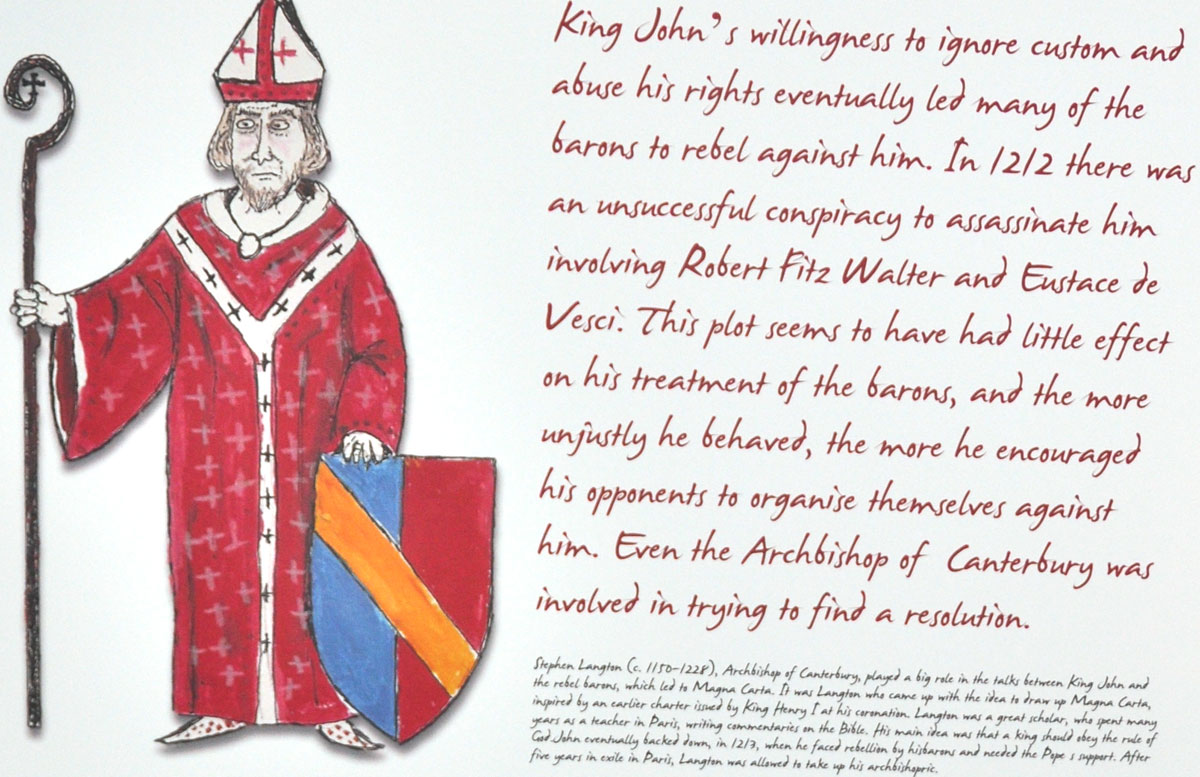 King John's willingness to ignore custom and
abuse his rights eventually led many of the
barons to rebel against him. In 1212 there was
an unsuccessful conspiracy to assassinate him
involving Robert Fitz Walter and Eustace de
Vesci. This plot seems to have had little effect
on his treatment of the barons, and the more
unjustly he behaved, the more he encouraged
his opponents to organise themselves against
him. Even the Archbishop of Canterbury was
involved in trying to find a resolution.
Stephen Langton (c. 1150-1228), Archbishop of Canterbury, played a big role in the talks between King John and
the rebel barons, which led to Magna Carta. It was Langton who came up with the idea to draw up Magna Carta,
inspired by an earlier charter issued by King Henry I at his coronation. Langton was a great scholar, who spent many
years as a teacher in Paris, writing commentaries on the Bible. His main idea was that a king should obey the rule of
God. John eventually backed down, in 1213, when he faced rebellion by hisbarons and needed the Pope s support. After
five years in exile in Paris, Langton was allowed to take up his archbishopric.